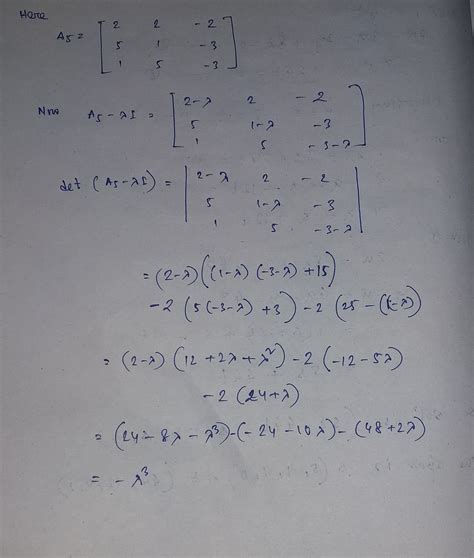 Here
A5 = [ 2 2 -2
5 1 -3
1 5 -3 ]
Now A5 - λI = [ 2-λ 2 -2
5 1-λ -3
1 5 -3-λ ]
det (A5-λI) = | 2-λ 2 -2
5 1-λ -3
1 5 -3-λ |
= (2-λ) ((1-λ) (-3-λ) +15)
-2 (5(-3-λ) +3) -2 (25 - (1-λ))
= (2-λ) (12 + 2λ + λ²) -2 (-12 -5λ)
-2 (24+λ)
= (24 - 8λ - λ³) - (-24 -10λ) - (48+2λ)
= -λ³